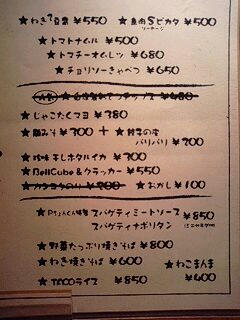 ★わさび豆腐 ¥550 ★魚肉Sピカタ ¥500
ソーセージ
★トマトナムル ¥500
★トマチーオムレツ ¥680
★チョリソーきゃべつ ¥650
★じゃこたくマヨ ¥380
★脳みそ ¥300 + ★餃子の皮
パリパリ ¥200
★珍味干しホタルイカ ¥300
★BellCube&クラッカー ¥550
★おかし ¥100
スパゲティミートソース ¥850
スパゲティナポリタン
★野菜たっぷり焼きそば ¥800
★わさ焼きそば ¥600 ★ねこまんま
★TACOライス ¥850 ¥400